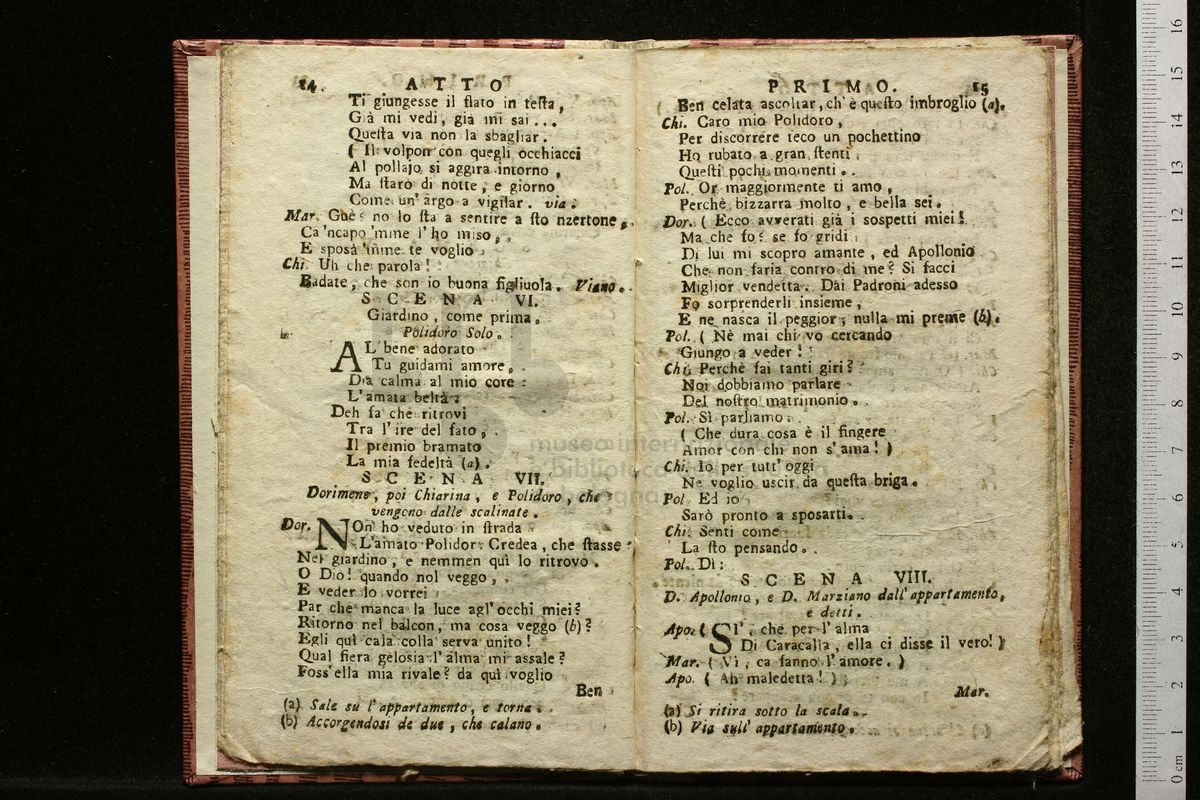 14 ATTO
Ti giungesse il fiato in testa,
Già mi vedi, già mi sai...
Questa via non la sbagliar.
( Il volpon con quegli occhiacci
Al pollajo si aggira intorno,
Ma starò di notte, e giorno
Come un' argo a vigilar. via.
Mar. Guè? no lo sta a sentire a sto nzertone,
Ca 'ncapo 'mme l'ho miso,
E sposà 'mme te voglio
Chi. Uh che parola!
Badate, che son io buona figliuola. Viano.
SCENA VI.
Giardino, come prima.
Polidoro Solo.
AL bene adorato
Tu guidami amore,
Dia calma al mio core
L'amata beltà:
Deh fa che ritrovi
Tra l'ire del fato,
Il premio bramato
La mia fedeltà (a).
SCENA VII.
Dorimene, poi Chiarina, e Polidoro, che
vengono dalle scalinate.
Dor. NOn ho veduto in strada
L'amato Polidor: Credea, che stasse
Nel giardino, e nemmen quì lo ritrovo.
O Dio! quando nol veggo,
E veder lo vorrei
Par che manca la luce agl'occhi miei?
Ritorno nel balcon, ma cosa veggo (b)?
Egli quì cala colla serva unito!
Qual fiera gelosia l'alma mi assale?
Foss'ella mia rivale? da quì voglio
Ben
(a) Sale su l'appartamento, e torna.
(b) Accorgendosi de due, che calano.
PRIMO. 15
Ben celata ascoltar, ch'è questo imbroglio (a).
Chi. Caro mio Polidoro,
Per discorrere teco un pochettino
Ho rubato a gran stenti
Questi pochi momenti.
Pol. Or maggiormente ti amo,
Perchè bizzarra molto, e bella sei.
Dor. ( Ecco avverati già i sospetti miei!
Ma che fo? se fo gridi
Di lui mi scopro amante, ed Apollonio
Che non faria contro di me? Si facci
Miglior vendetta. Dai Padroni adesso
Fo sorprenderli insieme,
E ne nasca il peggior, nulla mi preme (b).
Pol. ( Nè mai chi vo cercando
Giungo a veder!
Chi. Perchè fai tanti giri?
Noi dobbiamo parlare
Del nostro matrimonio.
Pol. Sì parliamo.
( Che dura cosa è il fingere
Amor con chi non s'ama! )
Chi. Io per tutt'oggi
Ne voglio uscir da questa briga.
Pol. Ed io
Sarò pronto a sposarti.
Chi. Senti come
La sto pensando.
Pol. Dì:
SCENA VIII.
D. Apollonio, e D. Marziano dall'appartamento,
e detti.
Apo. ( SI', che per l'alma
Di Caracalla, ella ci disse il vero! )
Mar. ( Vì, ca fanno l'amore. )
Apo. ( Ah maledetta! )
Mar.
(a) Si ritira sotto la scala.
(b) Via sull'appartamento.
museo internazionale
biblioteca della musica
16 15 14 13 12 11 10 9 8 7 6 5 4 3 2 1 0 cm